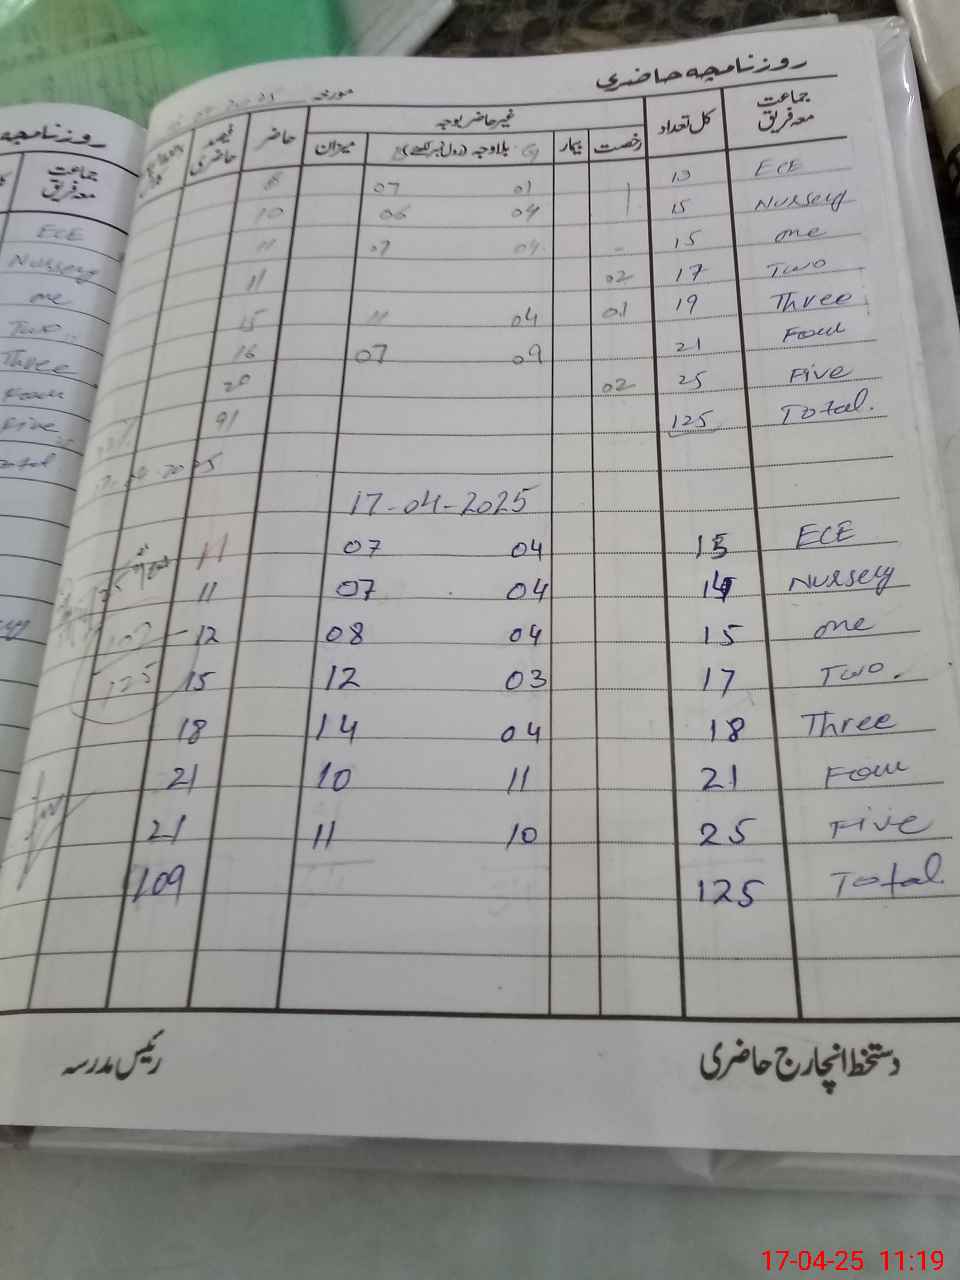 روزنامچہ حاضری
مورخہ
جماعت معہ فریق کل تعداد غیر حاضر بوجہ حاضر فیصد حاضری
رخصت بیمار بلاوجہ میزان
ECE 13 01 07 8
Nursery 15 04 06 10
one 15 04 07 11
Two 17 02 11
Three 19 01 04 11 15
Four 21 09 07 16
Five 25 02 20
Total. 125 91
17-04-2025
ECE 15 04 07 11
Nursery 14 04 07 11
one 15 04 08 12
Two. 17 03 12 15
Three 18 04 14 18
Four 21 11 10 21
Five 25 10 11 21
Total. 125 109
109
125
دستخط انچارج حاضری
رئیس مدرسہ
روزنامچہ
جماعت معہ فریق
ECE
Nursery
one
Two
Three
Four
Five
Total
17-04-25 11:19